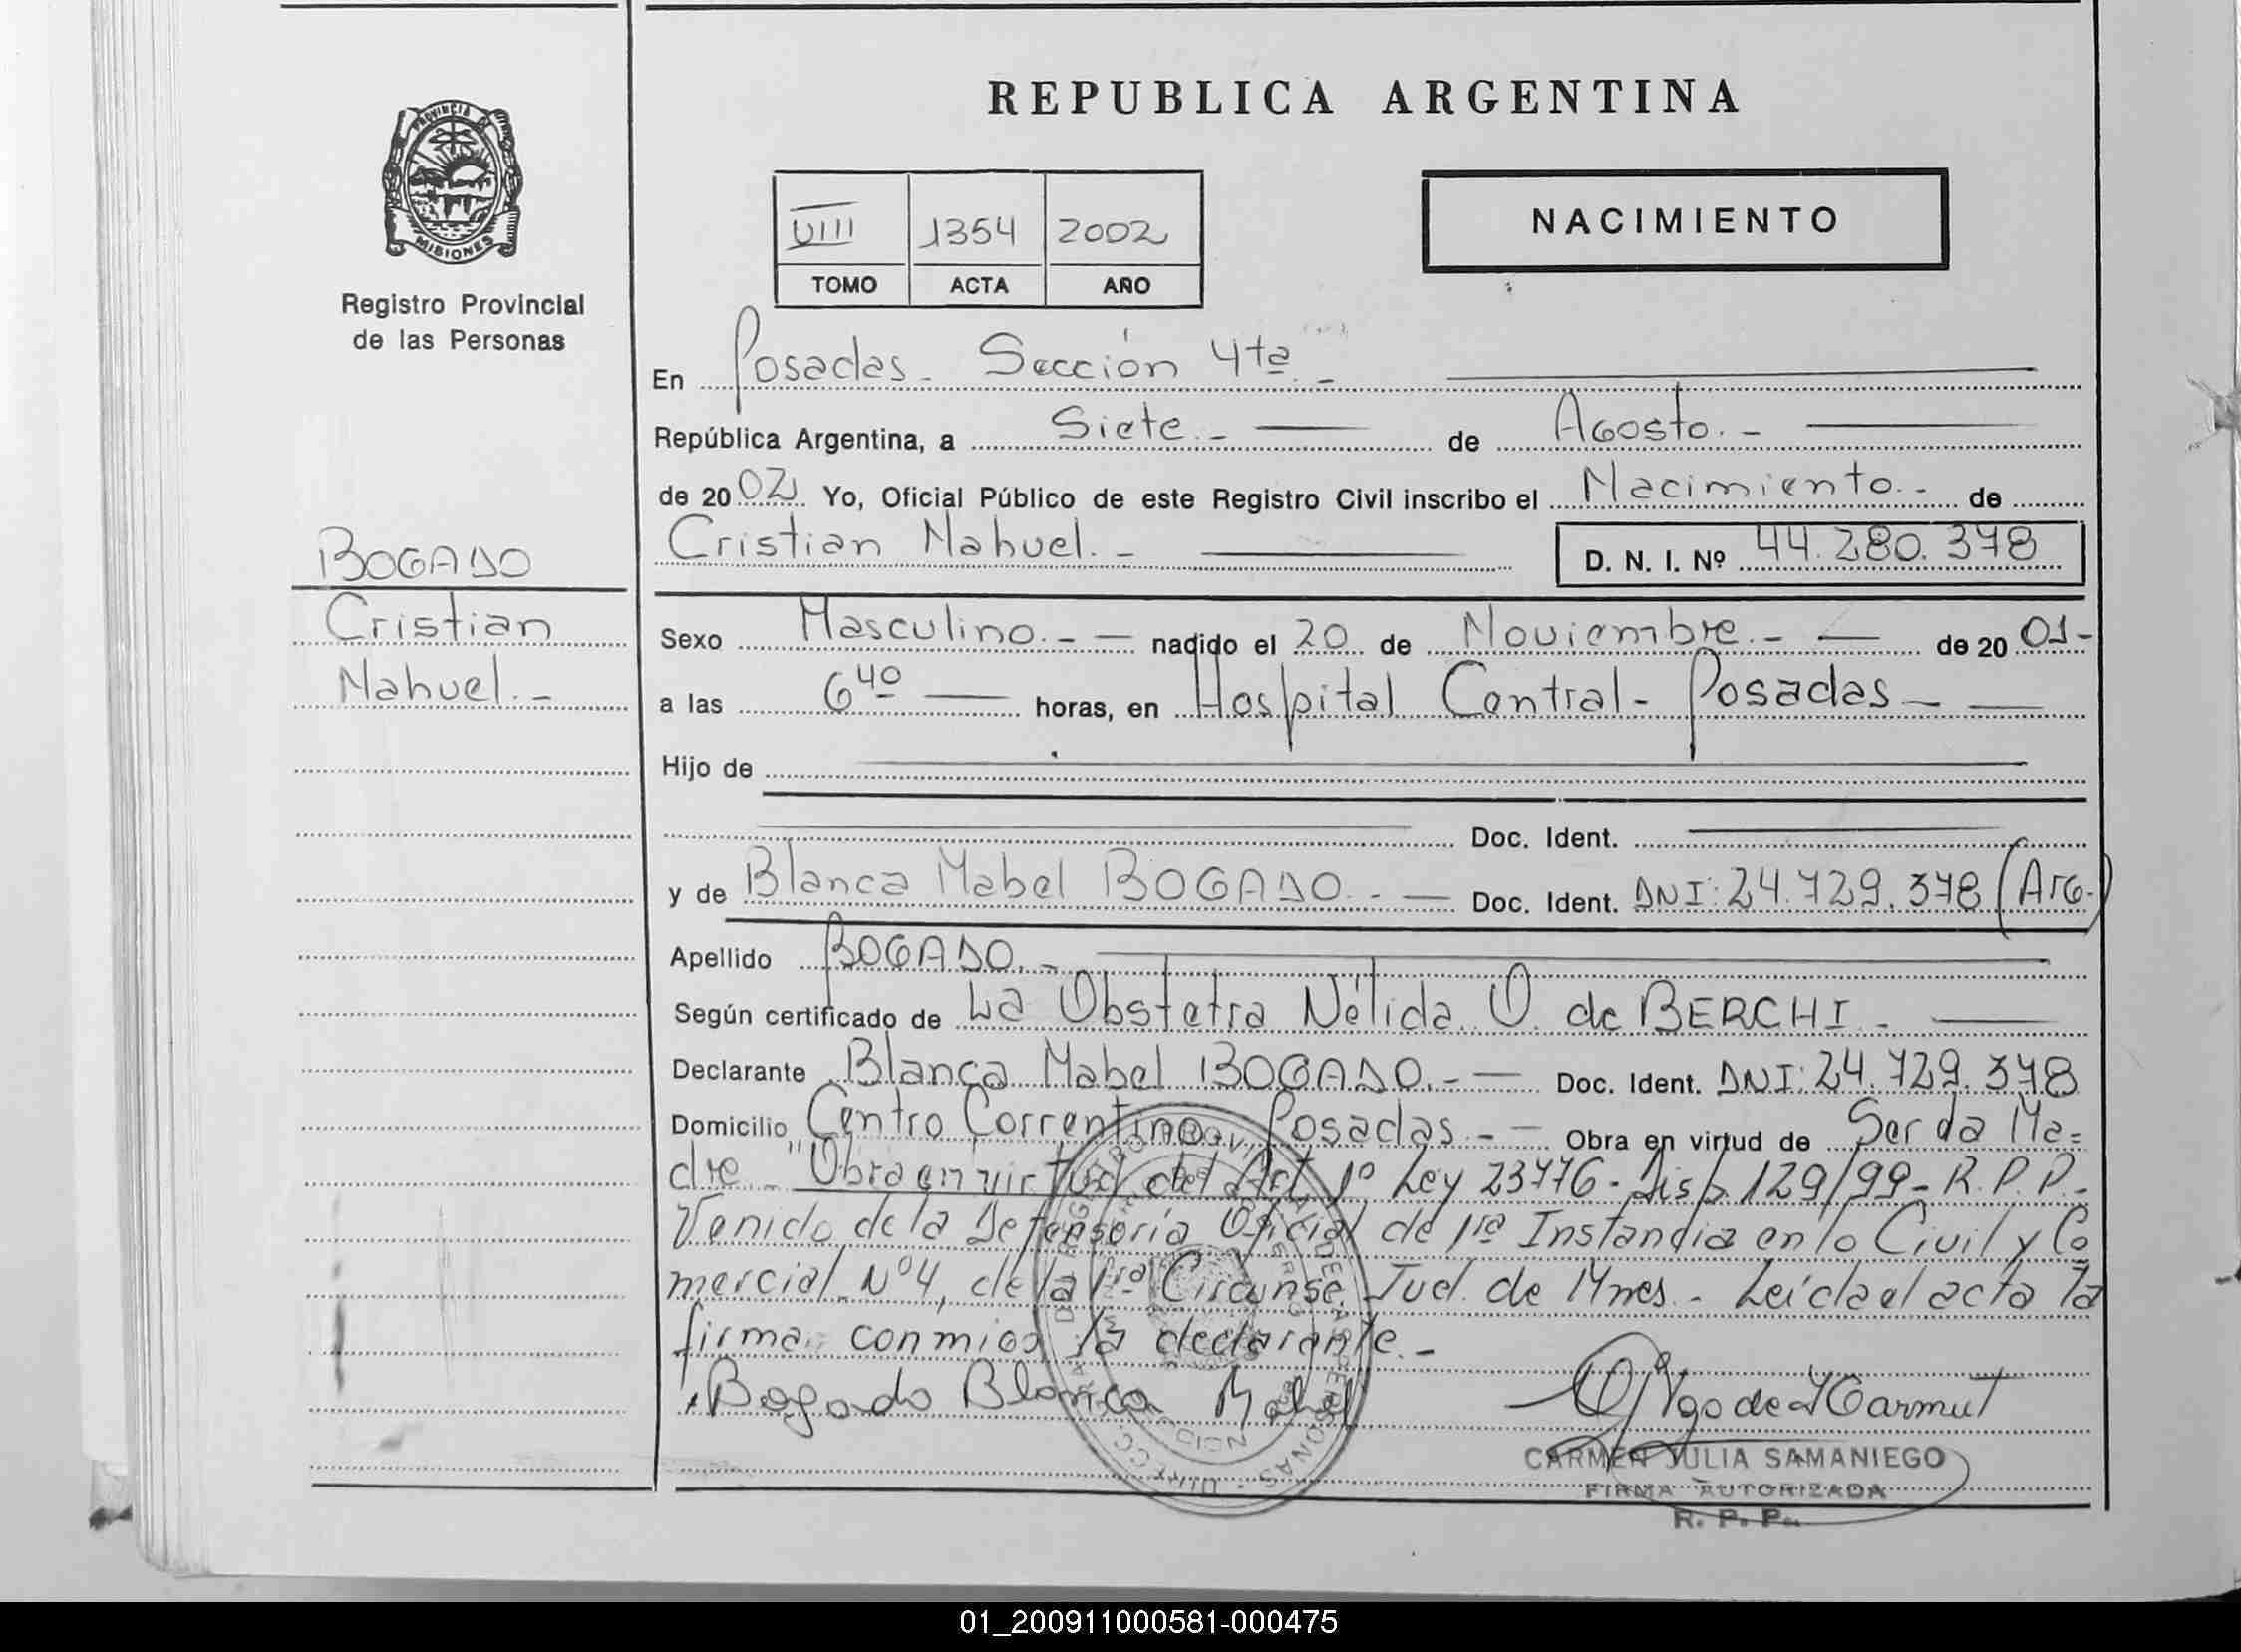 REPUBLICA ARGENTINA
PROVINCIA DE
MISIONES
Registro Provincial
de las Personas
VIII 1354 2002
TOMO ACTA AÑO
NACIMIENTO
En Posadas - Sección 4ta. -
República Argentina, a Siete. - de Agosto. -
de 2002 Yo, Oficial Público de este Registro Civil inscribo el Nacimiento. - de
BOGADO
Cristian
Nahuel. -
Cristian Nahuel. - D. N. I. Nº 44.280.378
Sexo Masculino. - - nacido el 20 de Noviembre. - - de 2001-
a las 6 40 horas, en Hospital Central - Posadas - -
Hijo de
Doc. Ident.
y de Blanca Mabel BOGADO. - - Doc. Ident. DNI: 24.729.378 (Arg.)
Apellido BOGADO. -
Según certificado de La Obstetra Nélida O. de BERCHI. -
Declarante Blanca Mabel BOGADO. - - Doc. Ident. DNI: 24.729.378
Domicilio Centro Correntino, Posadas. - - Obra en virtud de Ser da Ma=
dre - "Obra en virtud del Art. 1º Ley 23776 - Disp 129/99 - R.P.P.-
Venido de la Defensoría Oficial de 1ra Instandia en lo Civil y Co
mercial Nº 4, de la 1ra Circunsc. Jud. de Mnes. - Leída el acta la
firma conmigo la declarante. -
Bogado Blanca Mabel
CARMEN JULIA SAMANIEGO
FIRMA AUTORIZADA
R. P. P.
01_200911000581-000475